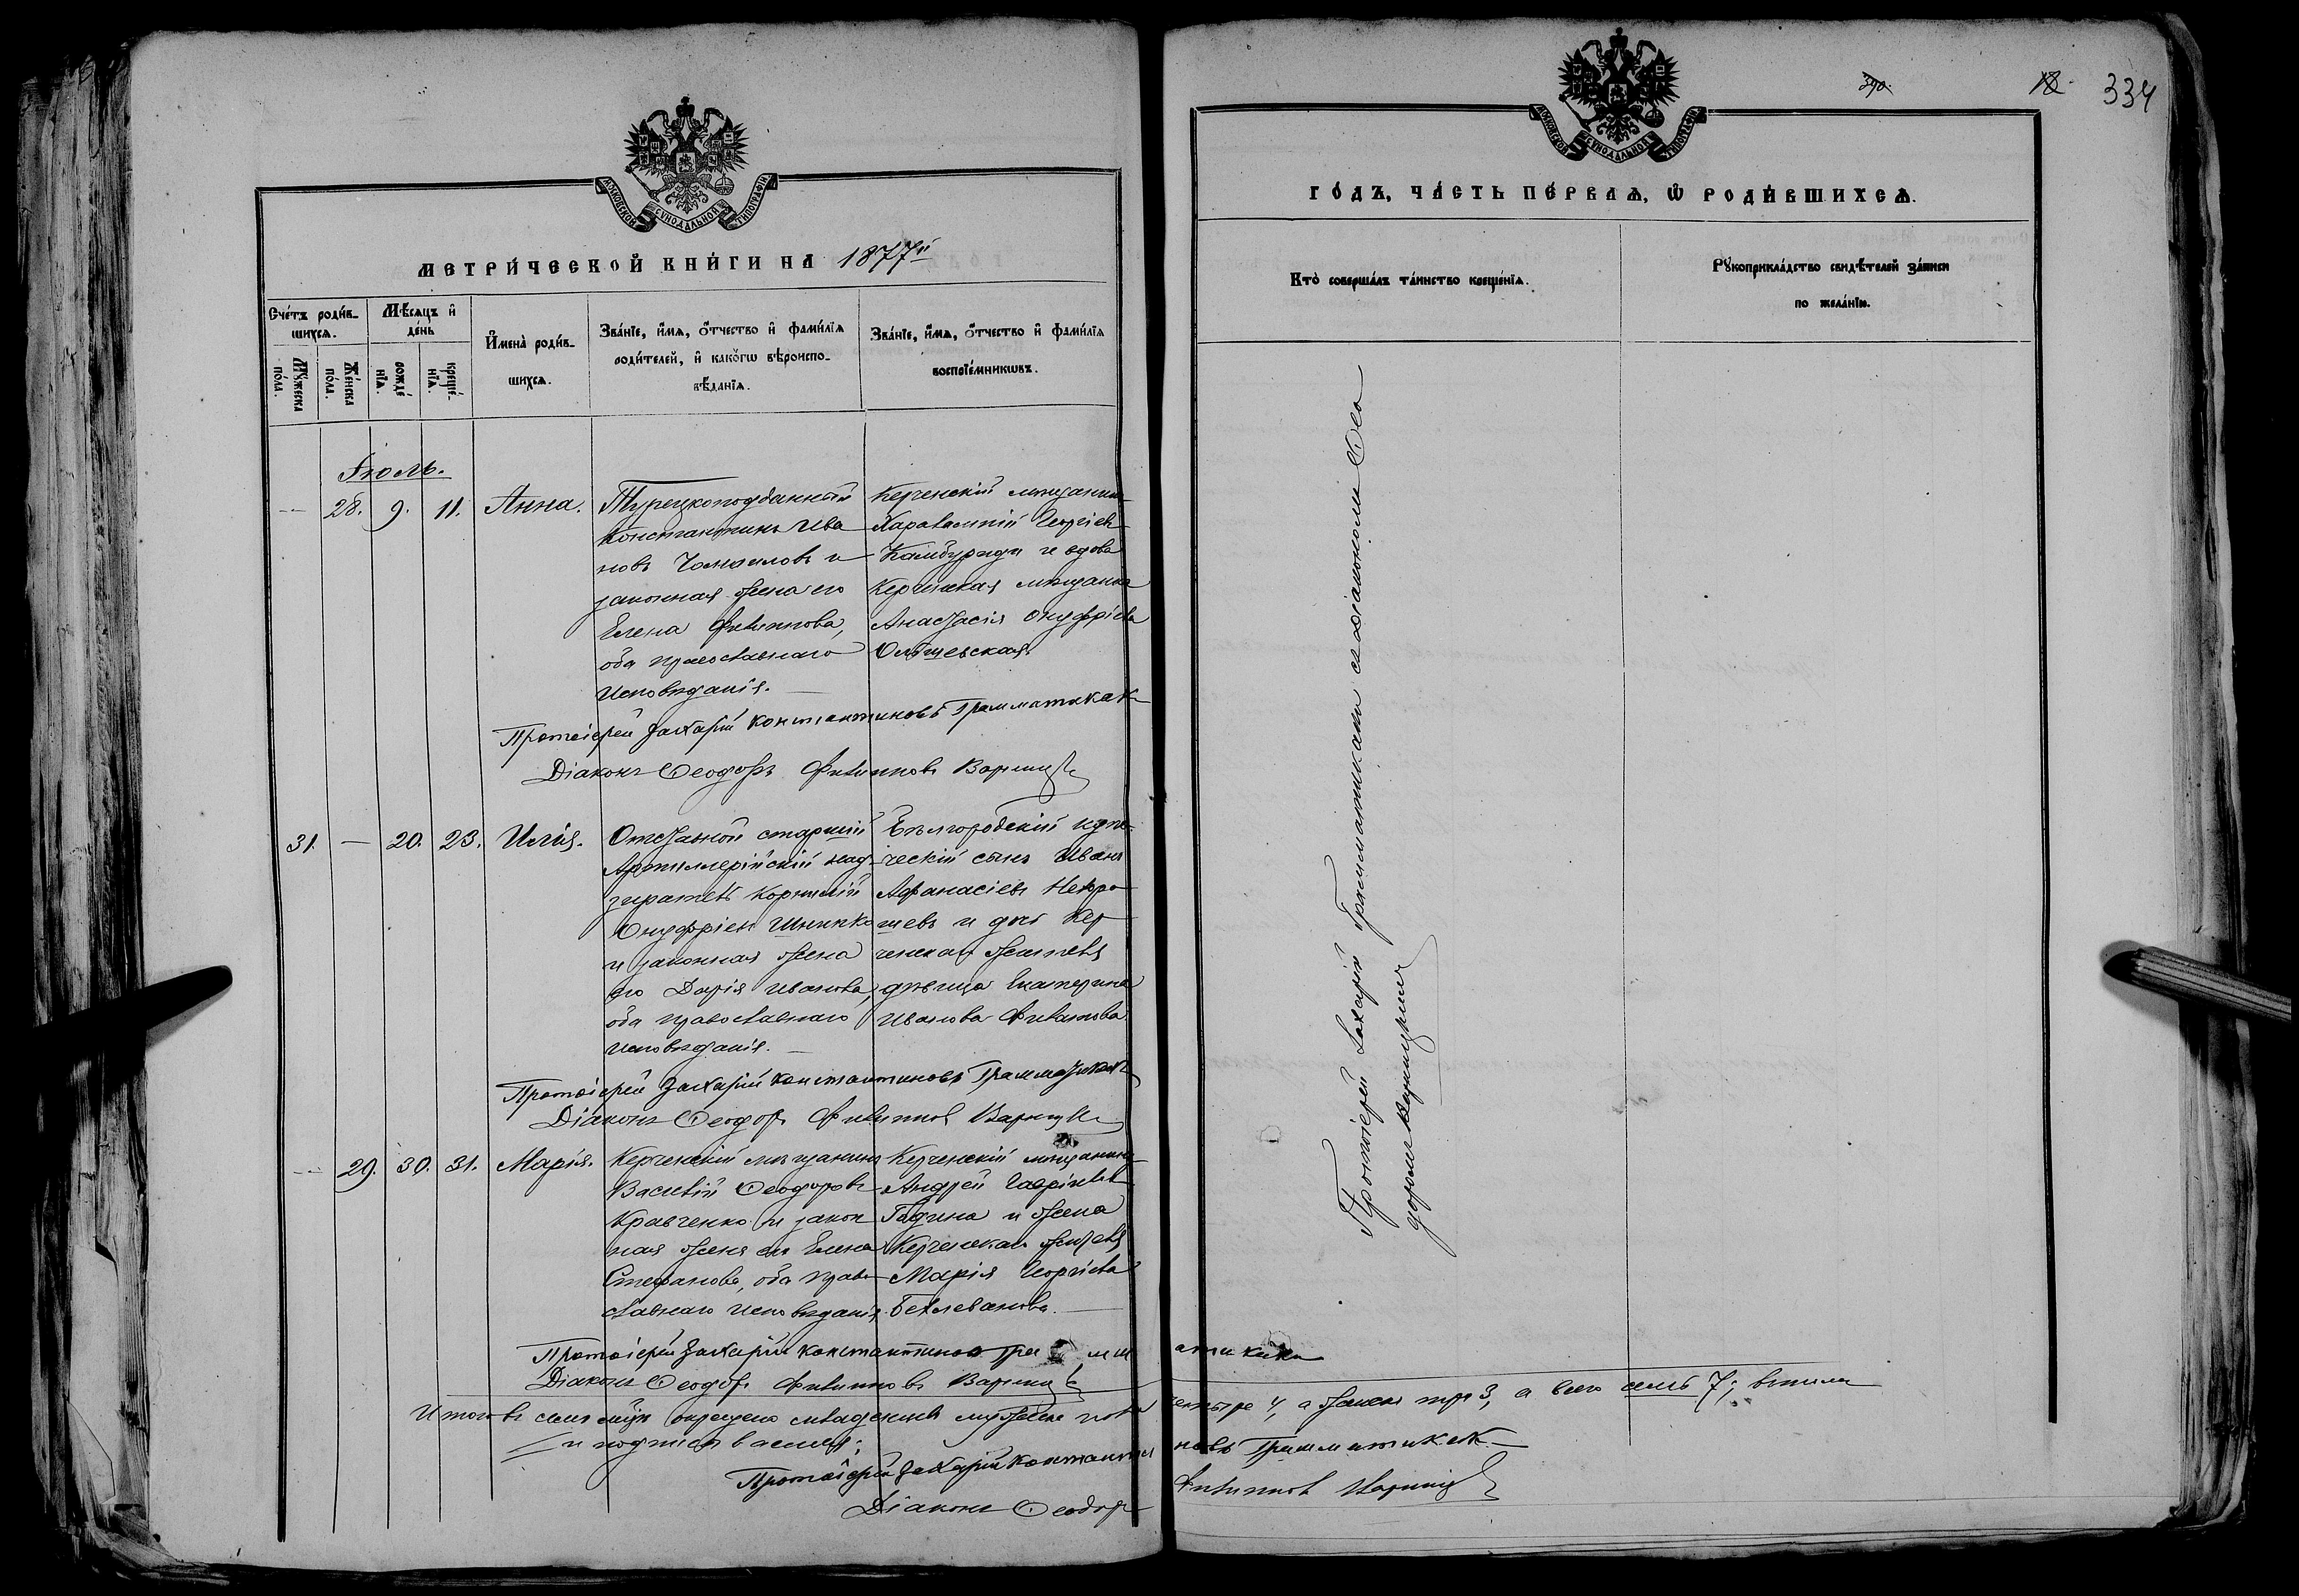 МОСКОВСКОЙ СѴНОДАЛЬНОЙ ТИПОГРАФІИ
МЕТРИ́ЧЕСКОЙ КНИ́ГИ НА 1877й
Сче́тъ роди́в-
шихся.
Мꙋ́жеска
по́ла.
Же́нска
по́ла.
Мѣ́сяцъ и҆
де́нь
рожде́
нїѧ.
креще́-
нїѧ.
И҆мена̀ роди́в-
шихсѧ.
Зва́нїе, и҆́мѧ, ѻ҆́тчество и҆ фами́лїѧ
роди́телей, и҆ како́гѡ вѣроиспо-
вѣ́данїѧ.
Зва́нїе, и҆́мѧ, ѻ҆́тчество и҆ фами́лїѧ
воспрїе́мникѡвъ.
Іюль.
— 28. 9. 11. Анна.
Турецкоподданный
Константинъ Ива
новъ и
законная жена его
Елена Филиппова,
оба православнаго
исповѣданія.
Керченскій мѣщанинъ
Харалампій Георгіевъ
и вдова
Керченская мѣщанка
Анастасія Онуфріева
Протоіерей Захарій Константиновъ Грамматикакъ
Діаконъ Ѳеодоръ Филипповъ
31. — 20. 23. Илія.
Отставной старшій
Артиллерійскій над-
зиратель Корнилій
Онуфріевъ
и законная жена
его Дарія Иванова,
оба православнаго
исповѣданія.
Бѣлгородскій купе-
ческій сынъ Иванъ
Афанасіевъ
и дочь Кер-
ченскаго жителя
дѣвица Екатерина
Иванова Филипова
Протоіерей Захарій Константиновъ Грамматикакъ
Діаконъ Ѳеодоръ Филипповъ
— 29. 30. 31. Марія.
Керченскій мѣщанинъ
Василій Ѳеодоровъ
Кравченко и закон
ная жена его Елена
Стефанова, оба право
славнаго исповѣданія.
Керченскій мѣщанинъ
Андрей Гавріиловъ
Гадина и жена
Керченскаго жителя
Марія Георгіева
Бехлеванова.
Протоіерей Захарій Константиновъ Грамматикакъ
Діаконъ Ѳеодоръ Филипповъ
Итого въ семъ мѣсяцѣ окрещено младенцевъ мужеска пола четыре 4, а женска три 3, а всего семь 7;
и подписались;
Протоіерей Захарій Константиновъ Грамматикакъ
Діаконъ Ѳеодоръ Филипповъ
МОСКОВСКОЙ СѴНОДАЛЬНОЙ ТИПОГРАФІИ
18 334
ГО́ДЪ, ЧА́СТЬ ПЕ́РВАѦ, Ѡ҆ РОДИ́ВШИХСѦ.
Кто̀ соверша́лъ та́инство креще́нїѧ.
Рꙋкоприкла́дство свидѣ́телей за́писи
по жела́нїю.
Протоіерей Захарій Грамматикакъ съ діакономъ Ѳео
доромъ